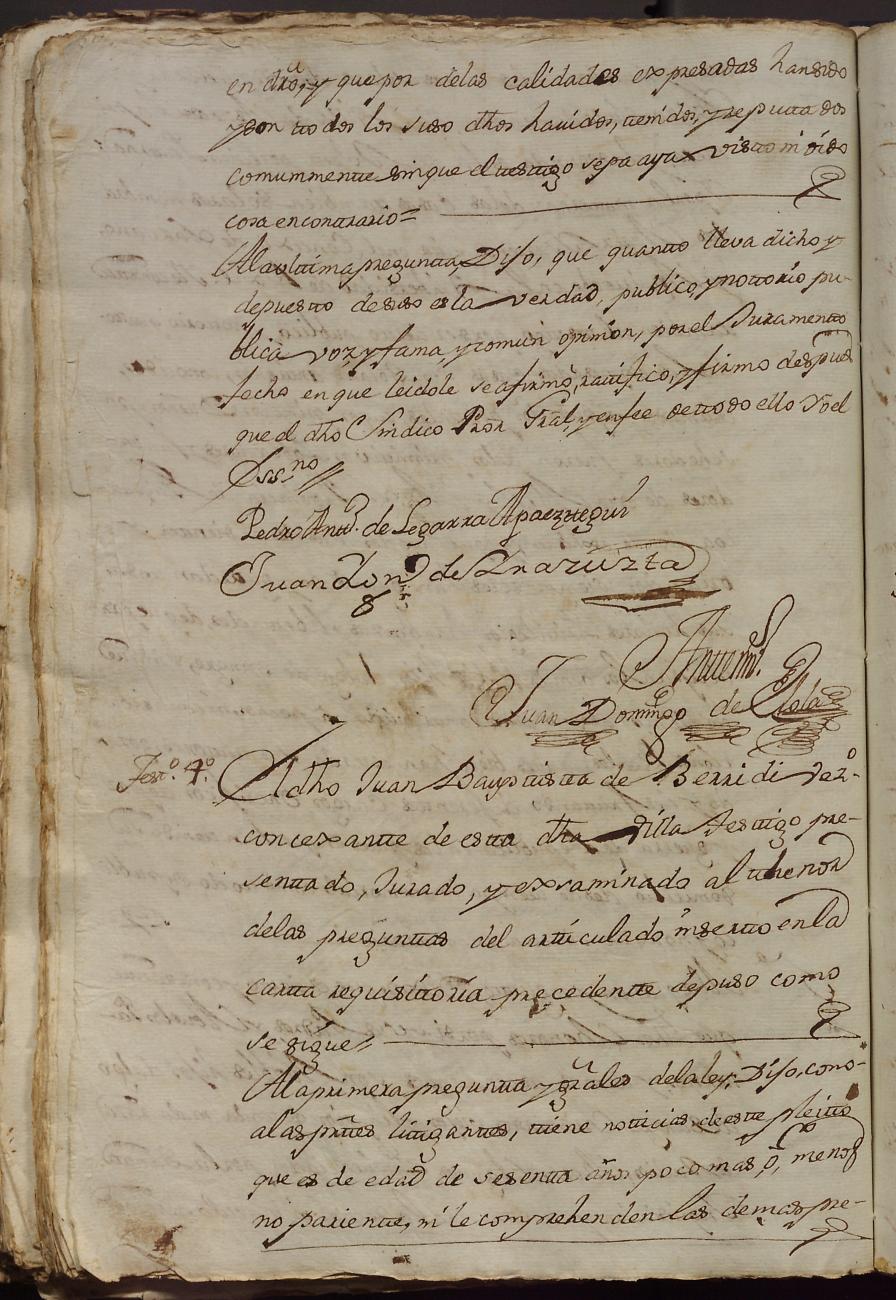 en dro, y que por delas calidades expresadas han sido
y son ttodos los suso dhos havidos, ttenidos, y reputtados
comunmentte sin que el ttesttigo sepa aya visto ni oido
cosa en conttrario=
Ala ulttima pregunta, Dijo, que quantto lleva dicho y
depuestto desuso es la verdad, publico, y nottorio pu-
blica voz, y fama, y comun opinion, por el Juramento
fecho en que leidole se afirmò, rattifico, y firmo despues
que el dho Sindico Pror Gral, y enfee de ttodo ello Yo el
Essno//
Pedro Antto. de Legarra Apaezttegui
Juan de Arazuzta
Antte mi.
Juan Domingo de Elola
Testo. 4º. El dho Juan Bapttistta de Berridi vezº.
concexantte de estta dha Villa Testtigo pre-
senttado, Jurado, y examinado al tthenor
delas preguntas del artticulado insertto en la
cartta requisittoria precedentte depuso como
se sigue//
Ala primera preguntta y grales dela ley, Dijo, cono-
a las prttes littigantes, ttiene notticias de estte pleitto
que es de edad de sesentta años poco mas, ò, menos
no parientte, ni le comprehenden las demas pre-